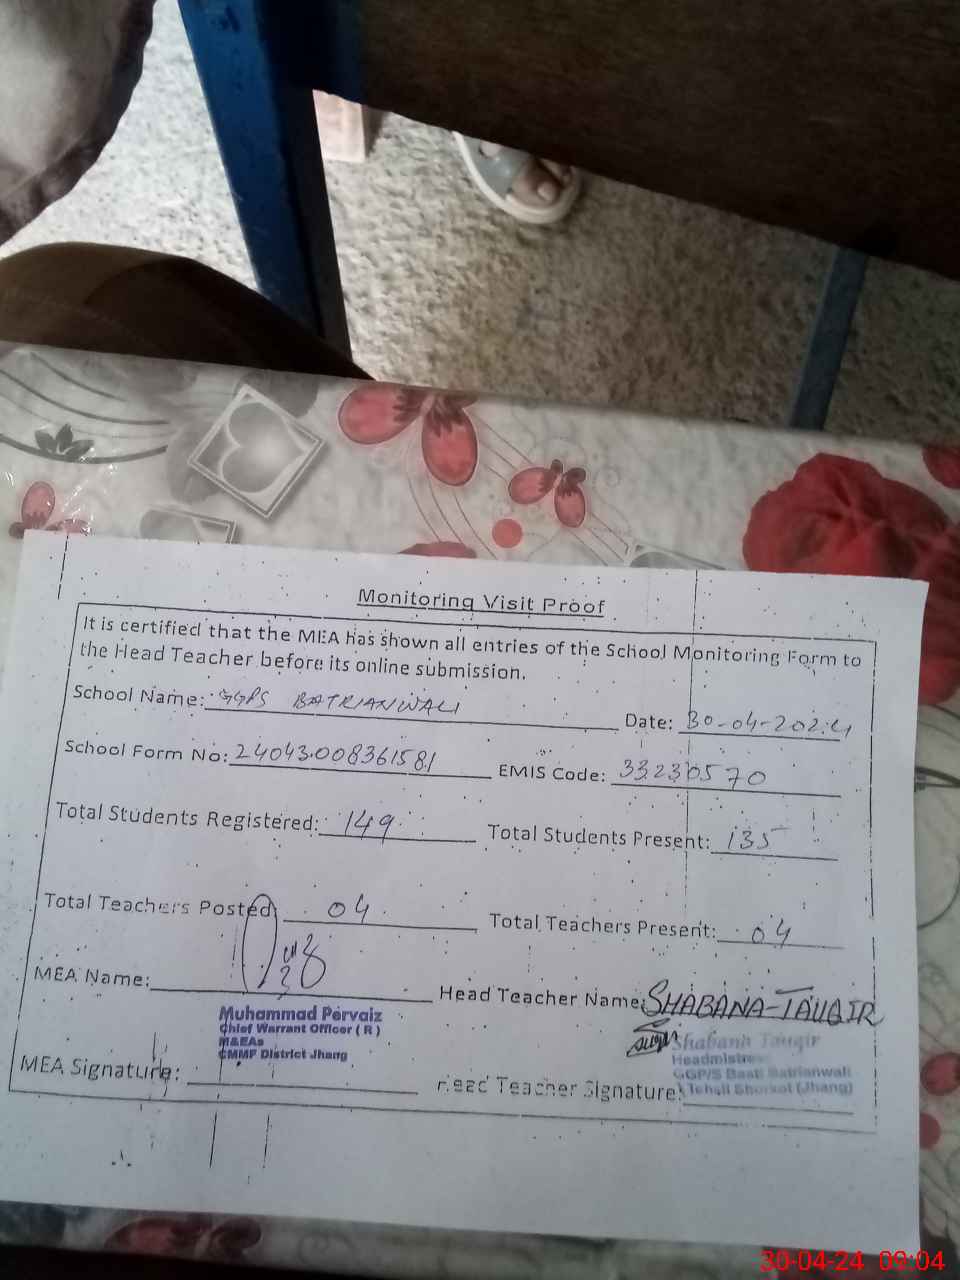 Monitoring Visit Proof
It is certified that the MEA has shown all entries of the School Monitoring Form to
the Head Teacher before its online submission.
School Name: GGPS BATRIANWALI Date: 30-04-2024
School Form No: 24043008361581 EMIS Code: 33230570
Total Students Registered: 149 Total Students Present: 135
Total Teachers Posted: 04 Total Teachers Present: 04
MEA Name: Head Teacher Name: SHABANA-TAUQIR
Muhammad Pervaiz
Chief Warrant Officer ( R )
M&EAs
CMMF District Jhang
Shabana Tauqir
Headmistress
GGP/S Basti Batrianwali
Tehsil Shorkot (Jhang)
MEA Signature: Head Teacher Signature:
30-04-24 09:04